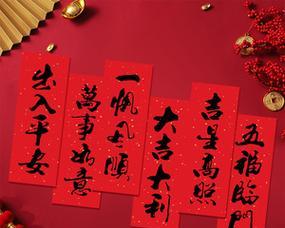 五福臨門
吉星高照
大吉大利
一帆風順
萬事如意
出入平安